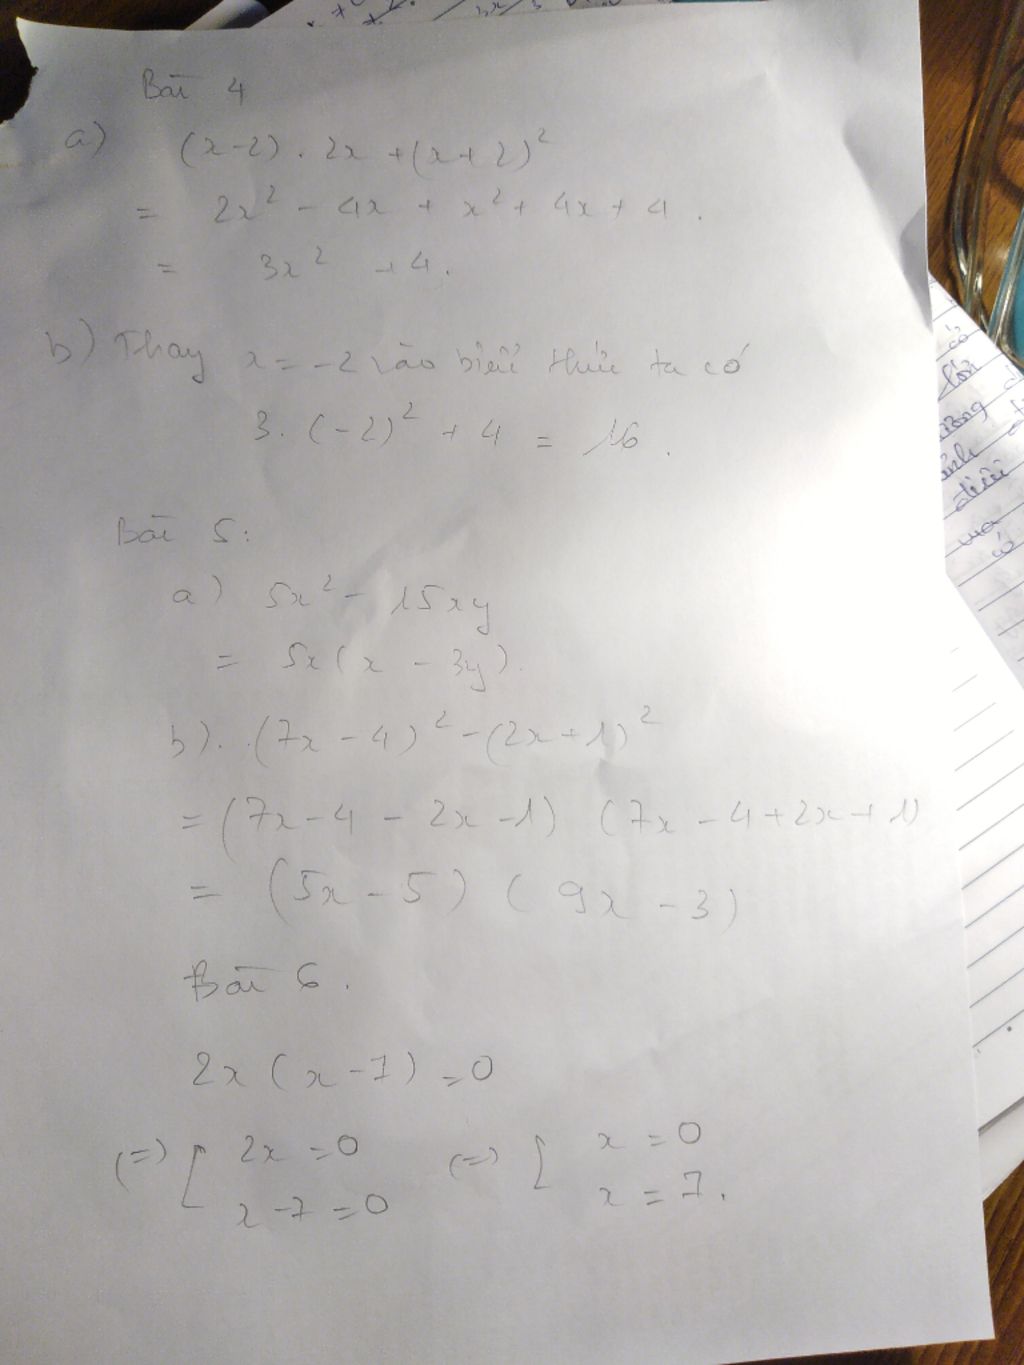 Bài 4
a) (x-2) . 2x + (x+2)²
= 2x² - 4x + x² + 4x + 4 .
= 3x² + 4.
b) Thay x = -2 vào biểu thức ta có
3. (-2)² + 4 = 16 .
Bài 5:
a) 5x² - 15xy
= 5x(x - 3y).
b). (7x - 4)² - (2x+1)²
= (7x - 4 - 2x - 1) (7x - 4 + 2x + 1)
= (5x - 5) (9x - 3)
Bài 6.
2x (x - 7) = 0
(=) [ 2x = 0 (=) [ x = 0
x - 7 = 0 x = 7.
có
lớn
điều
có